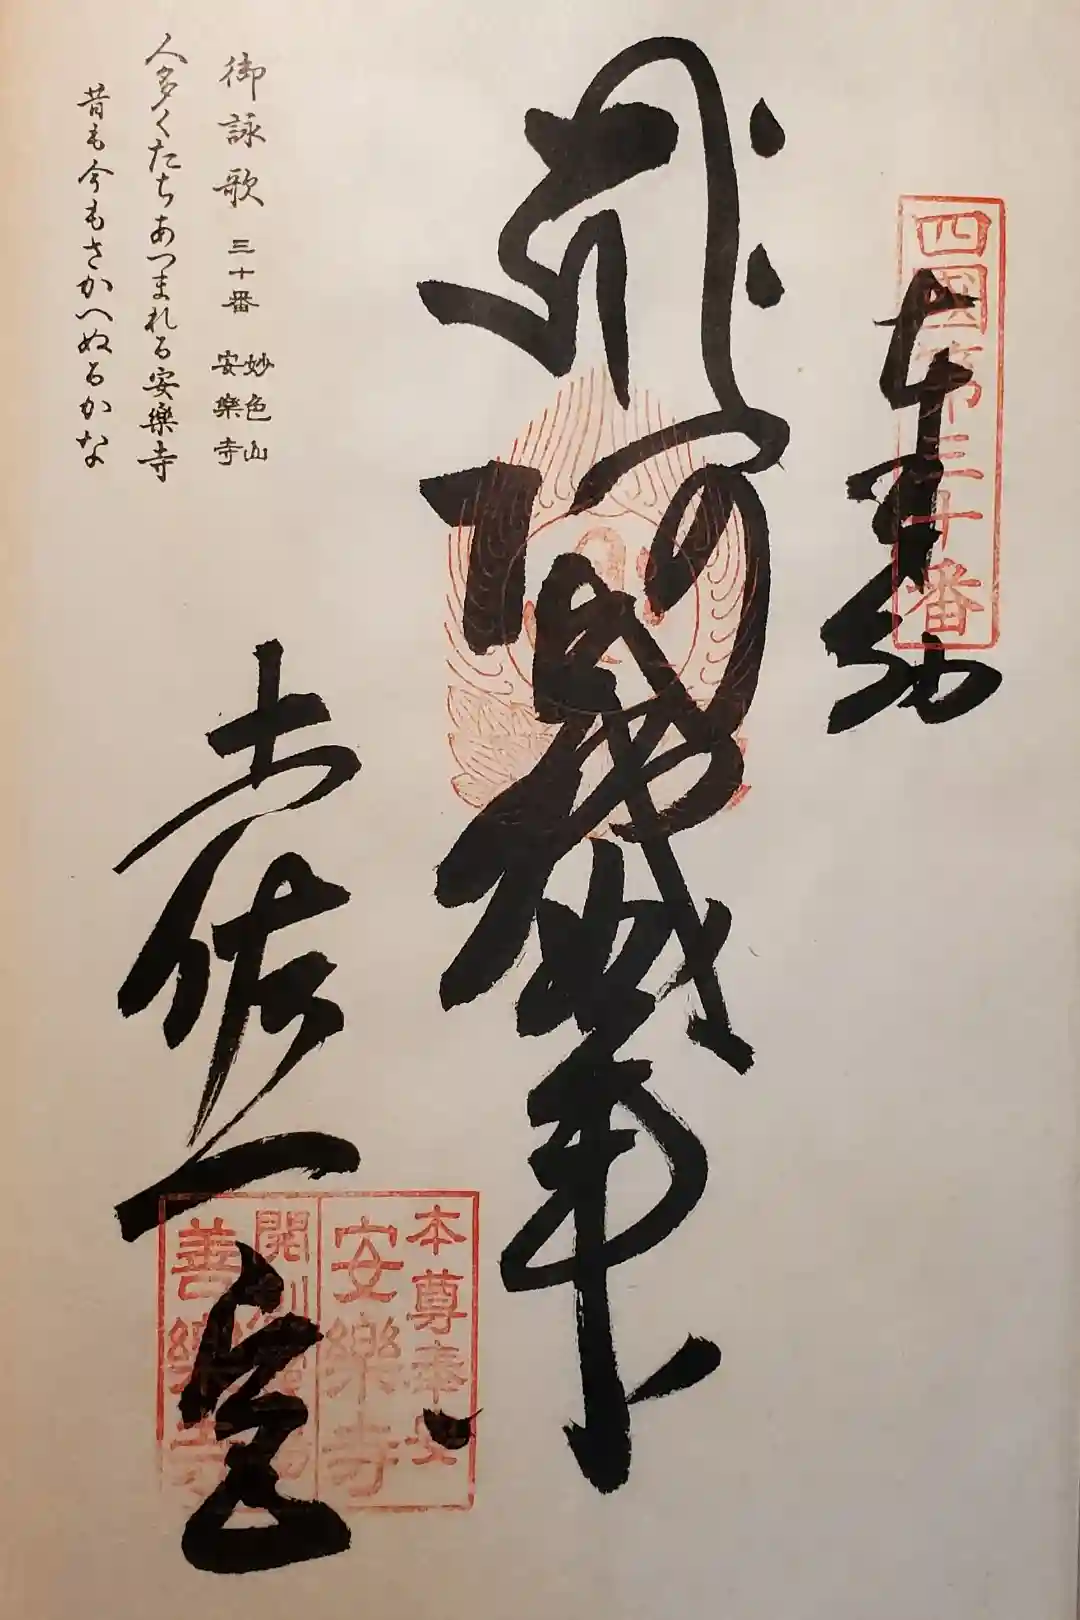 四國第三十番
奉納
土佐一宮
本尊奉安
安樂寺
開創霊場
善樂寺
御詠歌 三十番 妙色山 安樂寺
人多くたちあつまれる安樂寺
昔も今もさかへぬるかな